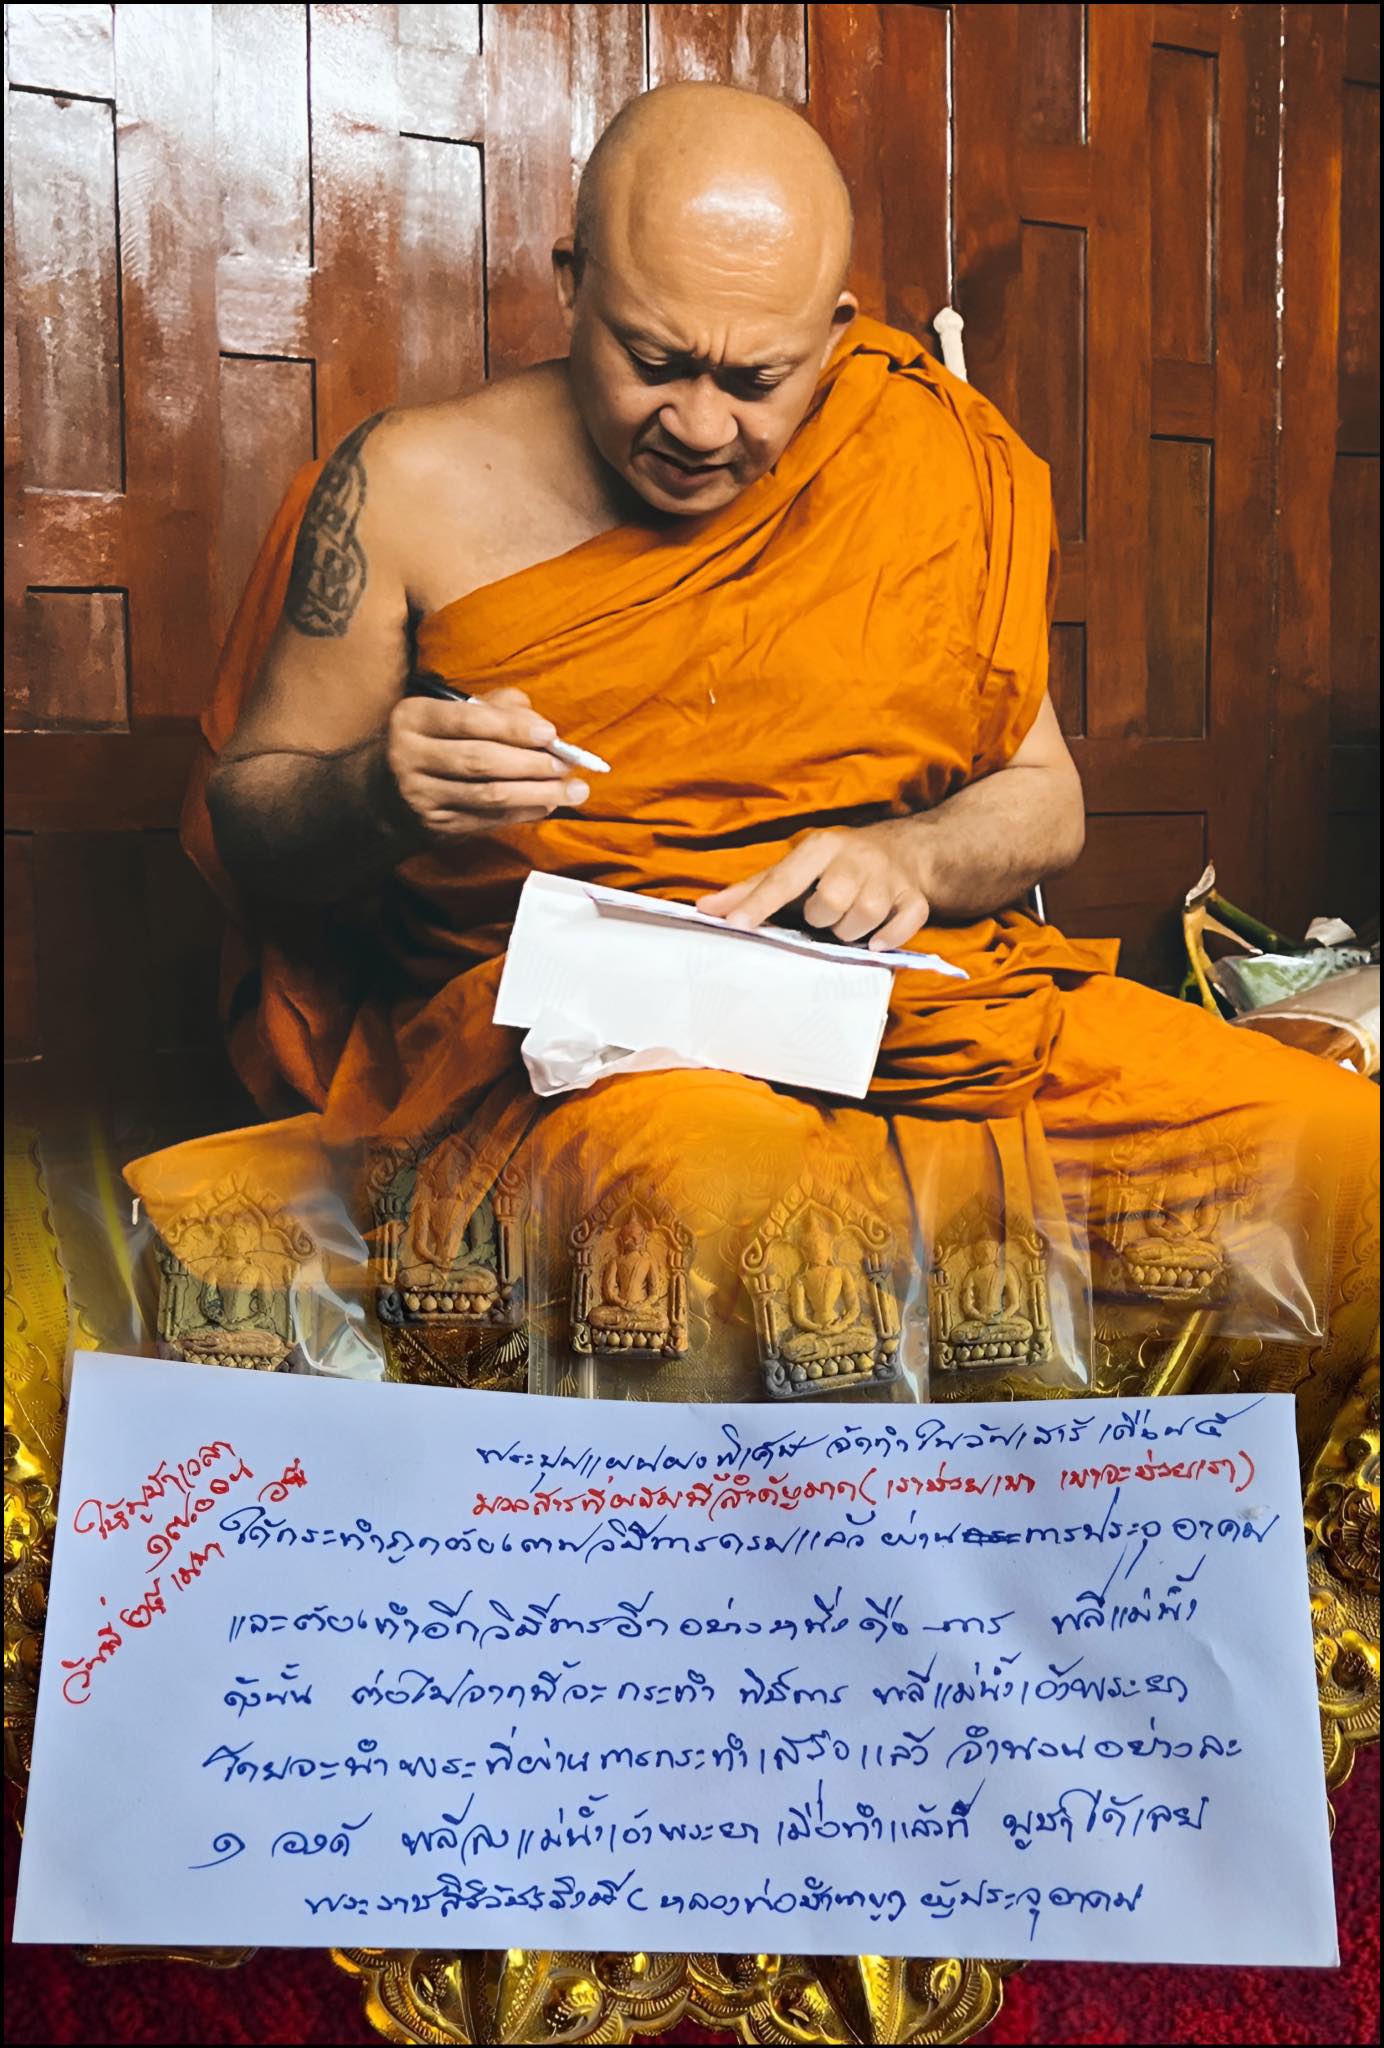 พระขุนแผนผงพิเศษ จัดทำในวันเสาร์ เดือน ๕
มวลสารที่ผสมที่สำคัญมาก (เราช่วยเขา เขาจะช่วยเรา)
ให้บูชาเวลา
๑๗.๐๐ น
วันนี้
วันที่ ๒๕ เมษา
ได้กระทำถูกต้องตามวิธีการครบแล้ว ผ่านการประจุอาคม
และต้องทำอีกวิธีการอีกอย่างหนึ่งคือ การ พลีแม่น้ำ
ดังนั้น ต่อไปจากนี้จะกระทำ พิธีการ พลีแม่น้ำเจ้าพระยา
โดยจะนำพระที่ผ่านการกระทำเสร็จแล้ว จำนวนอย่างละ
๑ องค์ พลีลงแม่น้ำเจ้าพระยา เมื่อทำแล้วก็ บูชาได้เลย
พระราชสิริวัชรรังษี (หลวงพ่อ ผู้ประจุอาคม